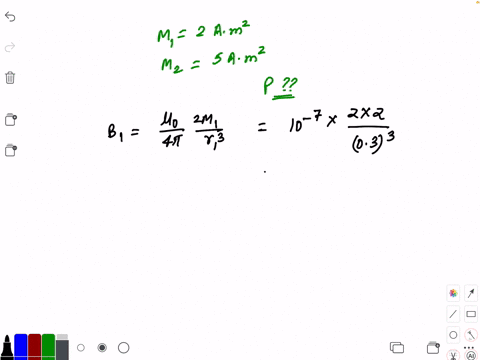 M₁ = 2 A·m²
M₂ = 5 A·m²
P ??
B₁ = μ₀/4π 2M₁/r₁³ = 10⁻⁷ × 2×2/(0.3)³